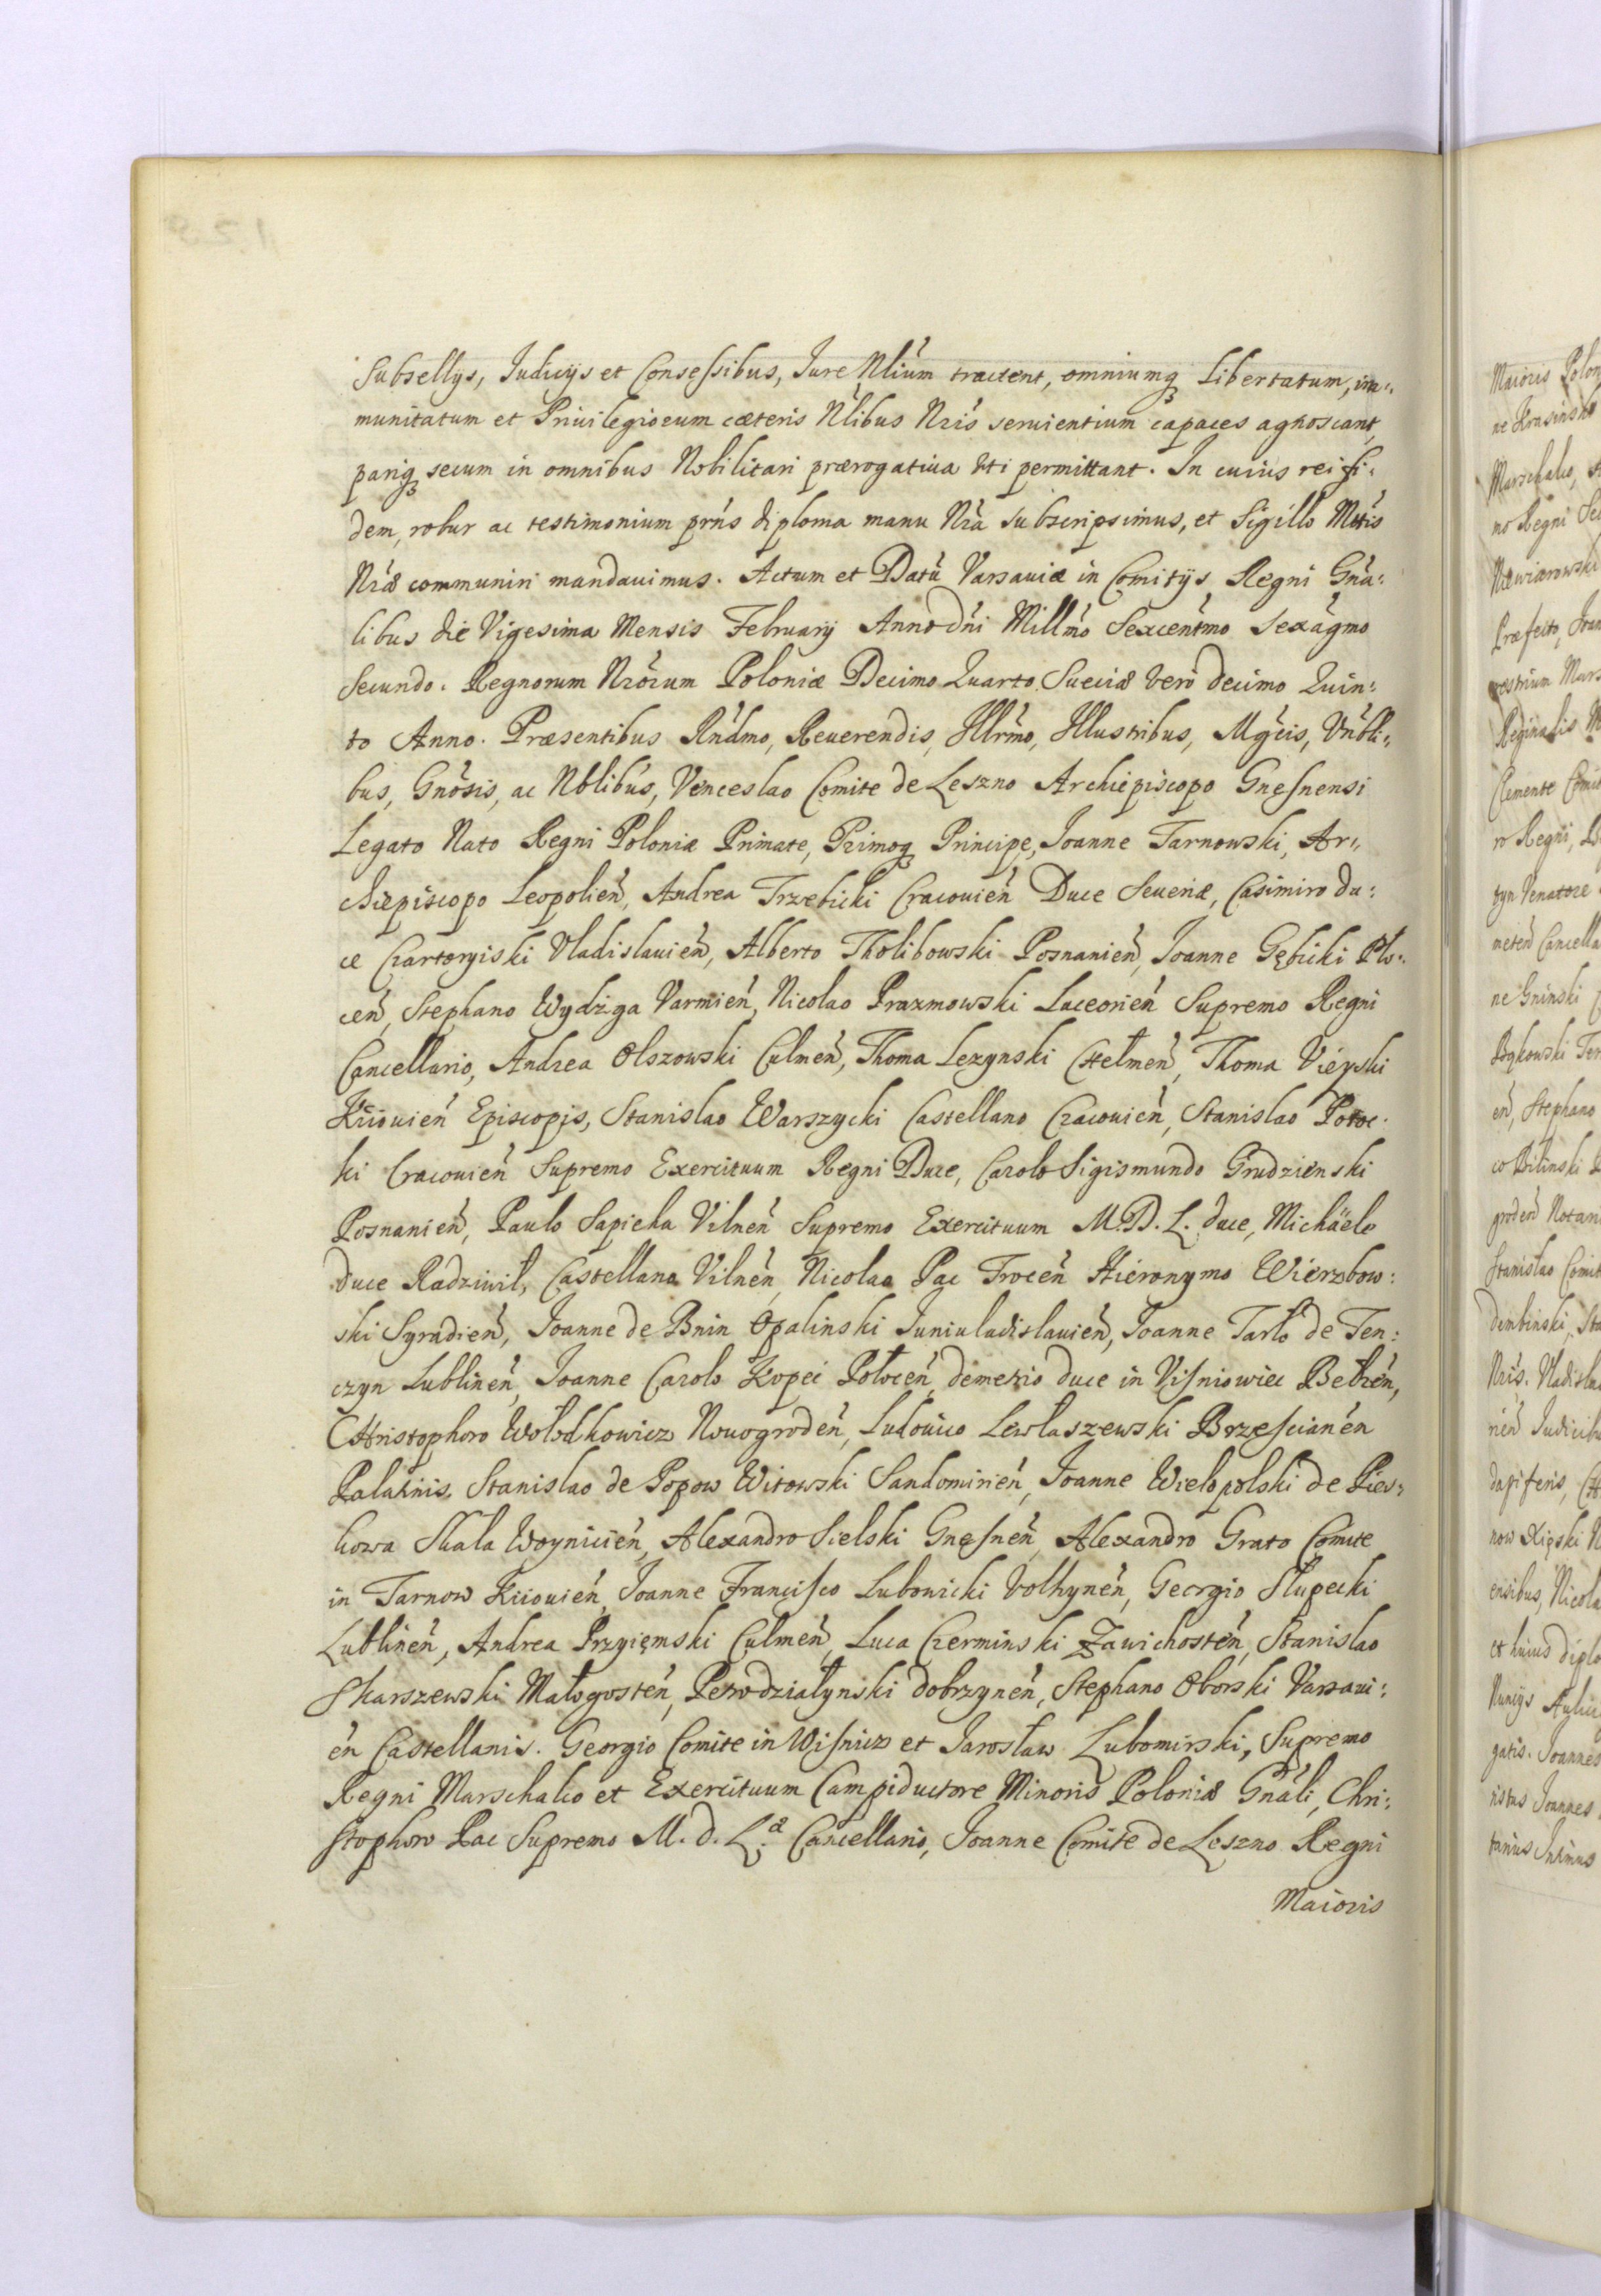 Subsellÿs, Judicÿs et Consessibus, Jure Nlium tractent, omniumq Libertatum, im:
munitatum et Priuilegioeum cæteris Nlibus Nris seruientium capaces agnoscant,
pariq secum in omnibus Nobilitari prærogatiua uti permittant. In cuius rei fi:
dem, robur ac testimonium prńs diploma manu Nra subscripsimus, et Sigillo Mttis
Nræ communiri mandauimus. Actum et Datū Varsauiæ in Comitÿs Regni Gńa:
libus die Vigesima Mensis February Anno dni Millmo Sexcentmo Sexagmo
Secundo. Regnorum Nrorum Poloniæ Decimo Quarto, Sueciæ vero decimo Quin:
to Anno. Præsentibus Rńdmo, Reuerendis, Illrmo, Illustribus, Mgcis, Vnbli:
bus, Gnosis, ac Nblibus, Venceslao Comite de Leszno Archiepiscopo Gnesnensi
Legato Nato Regni Poloniæ Primate, Primoq Principe, Joanne Tarnowski, Ar:
chiepiscopo Leopolień, Andrea Trzebicki Cracouień Duce Seueriæ, Casimiro du:
ce Czartoryiski Vladislauień, Alberto Tholibowski Posnanień, Joanne Gębicki Plo:
ceń, Stephano Wydżga Varmień, Nicolao Prazmowski Luceorień Supremo Regni
Cancellario, Andrea Olszowski Culmeń, Thoma Lezynski Chełmeń, Thoma Vieyski
Kiiouień Episcopis, Stanislao Warszycki Castellano Cracouień, Stanislao Potoc:
ki Cracouień Supremo Exercituum Regni Duce, Carolo Sigismundo Grudzienski
Posnanień, Paulo Sapieha Vilneń Supremo Exercituum M.D.L. duce, Michäele
duce Radziwił, Castellano Vilneń, Nicolao Pac Troceń Hieronymo Wierzbow:
ski Syradień, Joanne de Bnin Opalinski Juniuladislauień, Joanne Tarło de Ten:
czyn Lublineń, Joanne Carolo Kopeć Połoceń, demetrio duce in Visniowiec Bełzeń,
Christophoro Wołodkowicz Nouogrodeń, Ludouico Lewłaszewski Brzescianeń
Palatinis Stanislao de Popow Witowski Sandomirień, Joanne Wielopolski de Pies:
kowa Skała Woynicień, Alexandro Sielski Gnesneń, Alexandro Grato Comite
in Tarnow Kiiouień, Joanne Francisco Lubonicki Volhyneń, Georgio Słupecki
Lublineń, Andrea Przyięmski Culmeń, Luca Czerminski Zawichosteń, Stanislao
Skarszewski Małogosteń, Petro działynski dobrzyneń, Stephano Oborski Varsaui:
eń Castellanis. Georgio Comite in Wisnicz et Jarosław Lubomirski, Supremo
Regni Marschalco et Exercituum Campiductore Minoris Poloniæ Gńali, Chri:
stophoro Pac Supremo M.d.L.æ Cancellario, Joanne Comite de Leszno Regni
Maioris